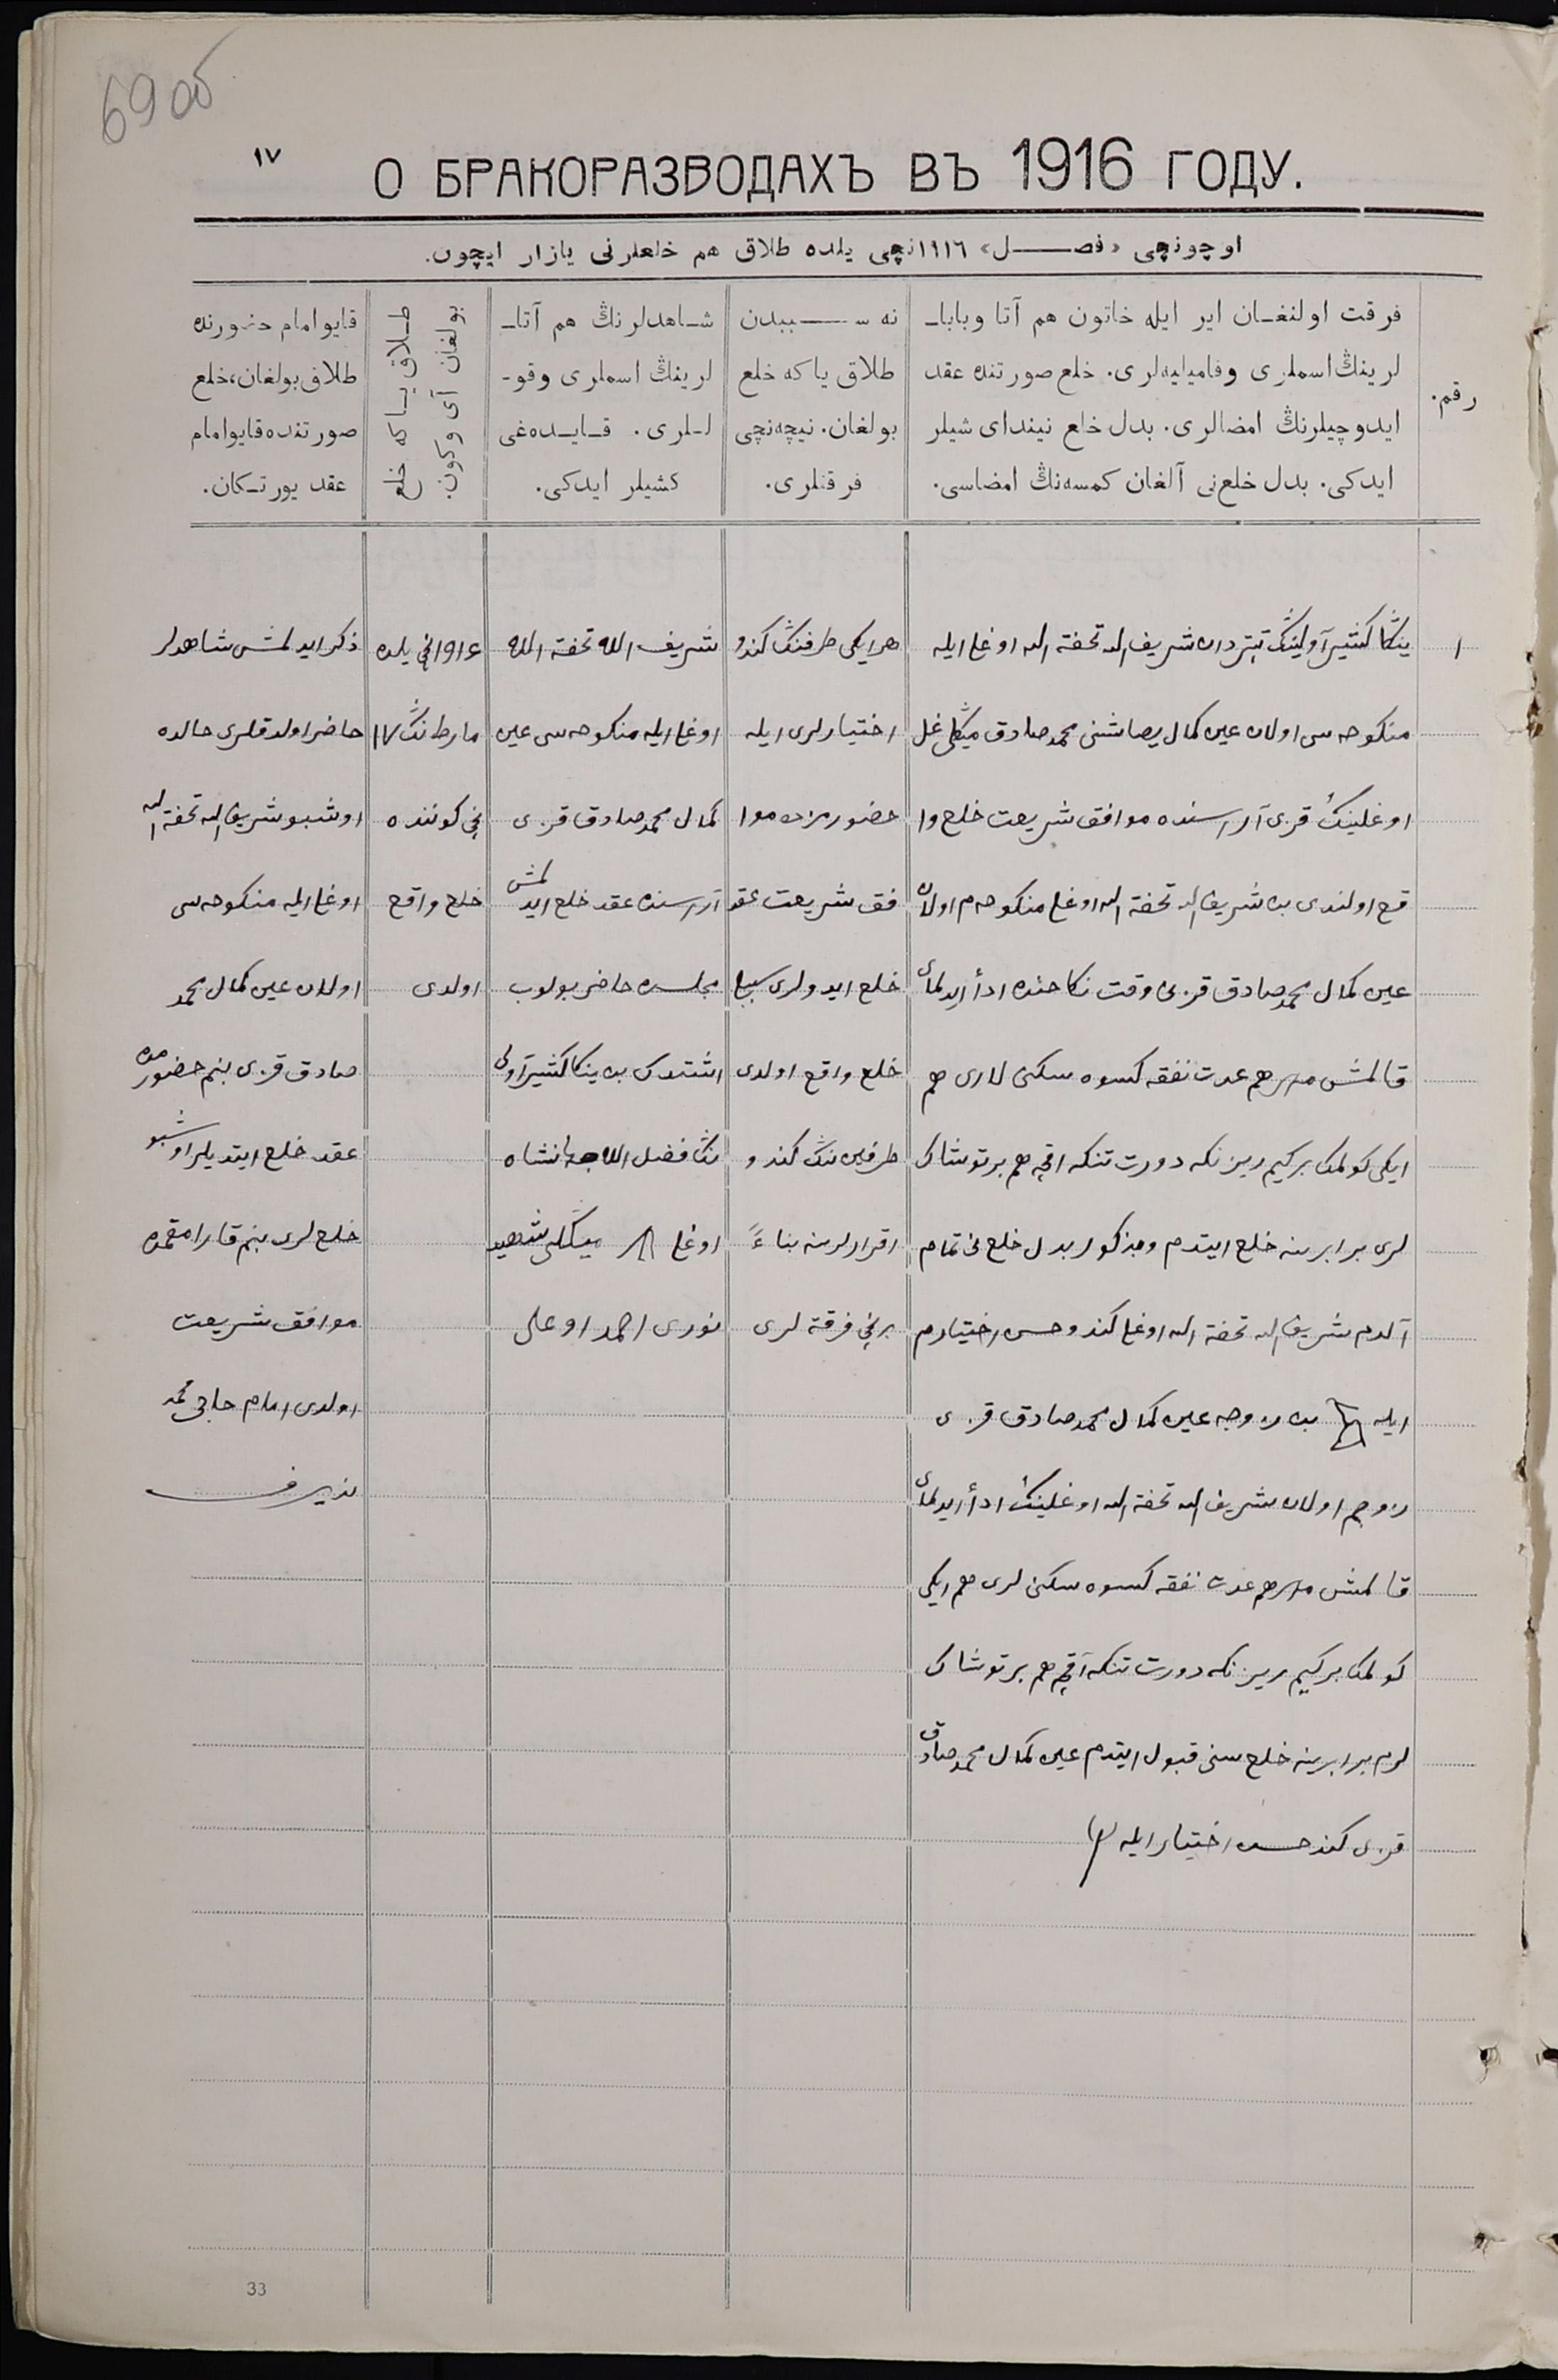 69 об
١٧
О БРАКОРАЗВОДАХЪ ВЪ 1916 ГОДУ.
اوچونچی «فصل» ١٩١٦نچی یلده طلاق هم خلعلرنی یازار ایچون.
رقم.
فرقت اولنغان ایر ایله خاتون هم آتا وبابا-
لرینڭ اسملری وفامیلیه‌لری. خلع صورتنده عقد
ایدوچیلرنڭ امضالری. بدل خلع نیندای شیلر
ایدکی. بدل خلع‌نی آلغان کمسه‌نڭ امضاسی.
نه سببدن
طلاق یا که خلع
بولغان. نیچه‌نچی
فرقتلری.
شاهدلرنڭ هم آتا-
لرینڭ اسملری وقو-
لـلری. قایـده‌غی
کشیلر ایدکی.
طلاق یا که خلع
بولغان آی وکون.
قایو امام حضورنده
طلاق بولغان، خلع
صورتنده قایو امام
عقد یورتکان.
١
شریف الله تحفة الله اوغلی ایله
منکوحه سی اولان عین کمال محمد صادق
اوغلینڭ قزی آراسنده موافق شریعت خلع وا
قع اولندی بن شریف الله تحفة الله اوغلی منکوحه م اولان
عین کمال محمد صادق قزی وقت نکاحنده ادأ ایدلمای
قالمش مهر هم عدت نفقه کسوه سکنی لاری هم
ایکی کولمک بر کیم دورت تنکه اقچه هم بر توشاک
لری برابرینه خلع ایتدم ومذکور بدل خلع نی تمام
آلدم شریف الله تحفة الله اوغلی کندو حسن اختیارم
ایله بن زوجه عین کمال محمد صادق قزی
زوجم اولان شریف الله تحفة الله اوغلینڭ ادأ ایدلمای
قالمش مهر هم عدت نفقه کسوه سکنی لری هم ایکی
کولمک بر کیم دورت تنکه آقچه هم بر توشاک
لرم برابرینه خلع سنی قبول ایتدم عین کمال محمد صادق
قزی کند حسن اختیار ایله
هر ایکی طرفنڭ کندو
اختیارلری ایله
حضورمزده موا
فق شریعت عقد
خلع ایدولری سببلی
خلع واقع اولدی
طرفین نڭ کندو
اقرارلرینه بناءً
برنچی فرقة لری
شریف الله تحفة الله
اوغلی ایله منکوحه سی عین
کمال محمد صادق قزی
آراسنده عقد خلع ایدلمش
مجلسده حاضر بولوب
اشتدک بن
فضل الله جهانشاه
اوغلی
نوری احمد اوغلی
١٩١٦نچی یلده
مارط نڭ ١٧
نچی کوننده
خلع واقع
اولدی
ذکر ایدلمش شاهدلر
حاضر اولدقلری حالده
اوشبو شریف الله تحفة الله
اوغلی ایله منکوحه سی
اولان عین کمال محمد
صادق قزی بنم حضورمده
عقد خلع ایتدیلر اوشبو
خلع لری بنم
موافق شریعت
اولدی امام حاجی محمد
نذیرف
33